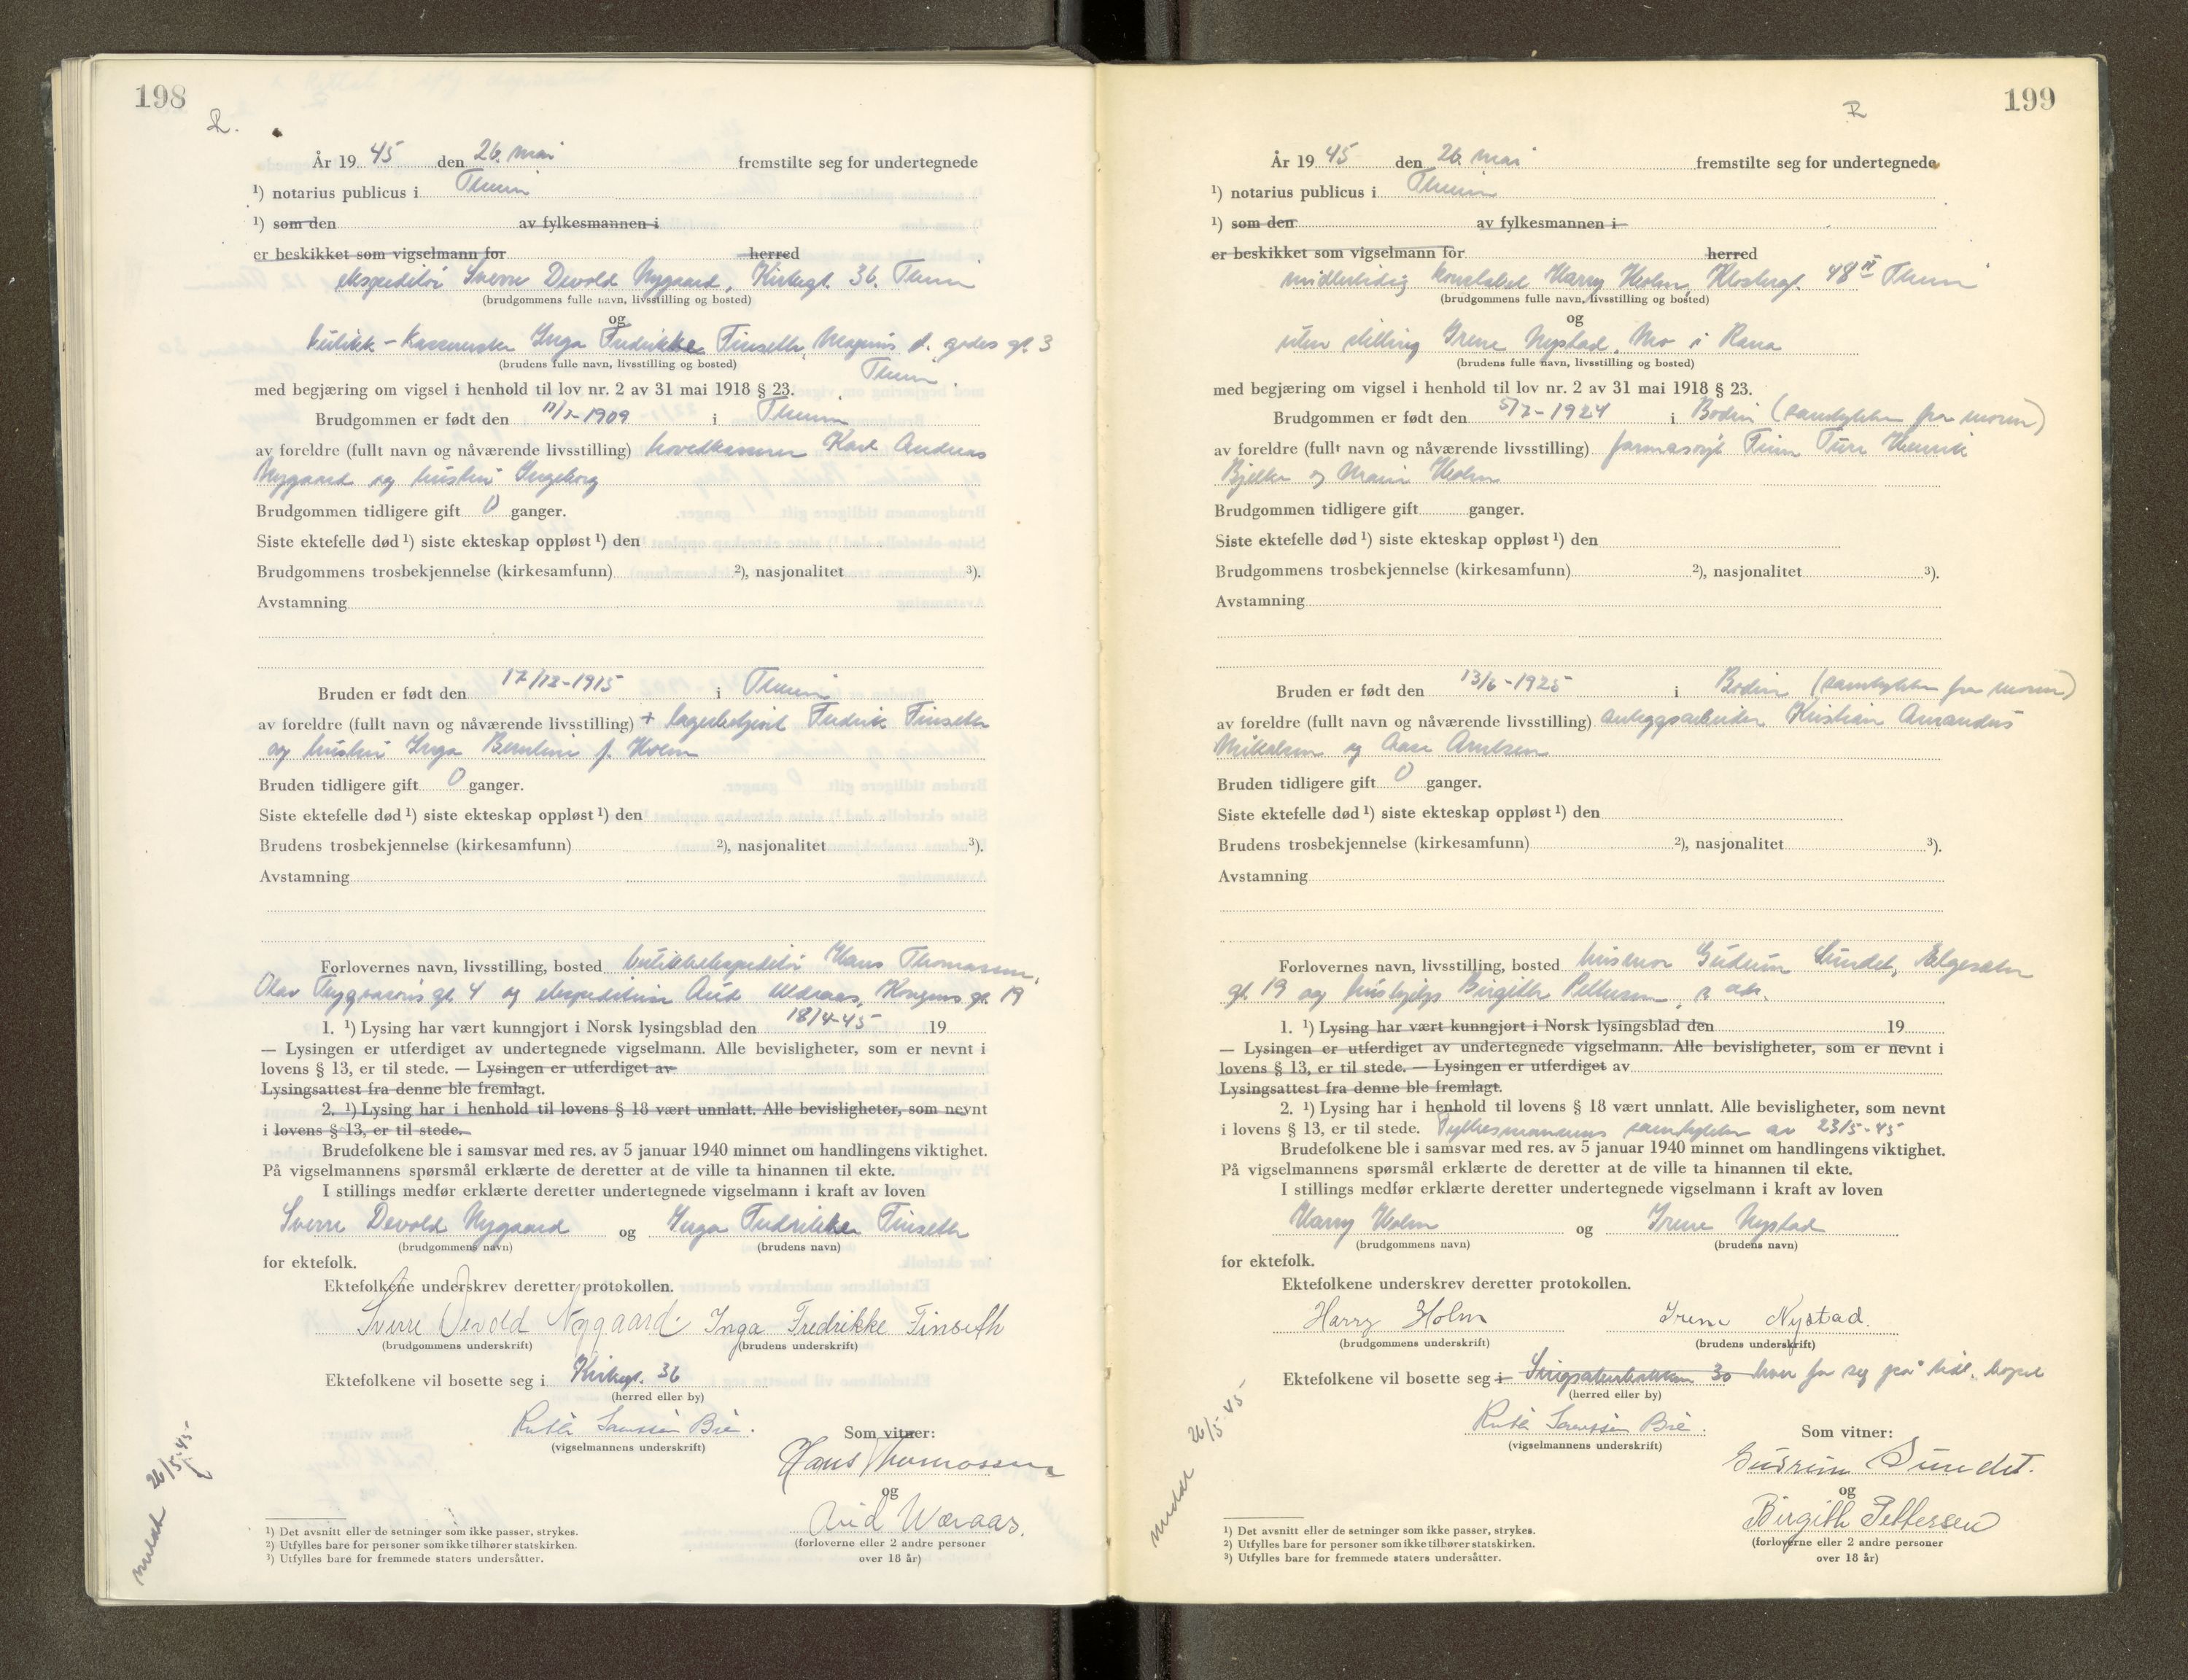 198
R.
År 19 45 den 26. mai fremstilte seg for undertegnede
¹) notarius publicus i Theim
¹) som den av fylkesmannen i
er beskikket som vigselmann for herred
ekspeditør Sverre Devold Nygaard, Kirkegt. 36. Theim
(brudgommens fulle navn, livsstilling og bosted)
og
butikk-kassererske Inga Fredrikke Finseth, Magnus d. godes gt. 3
(brudens fulle navn, livsstilling og bosted)
Theim.
med begjæring om vigsel i henhold til lov nr. 2 av 31 mai 1918 § 23.
Brudgommen er født den 1909 i Theim
av foreldre (fullt navn og nåværende livsstilling) hovedkasserer Karl Andreas
Nygaard og hustru Ingeborg
Brudgommen tidligere gift 0 ganger.
Siste ektefelle død ¹) siste ekteskap oppløst ¹) den
Brudgommens trosbekjennelse (kirkesamfunn) ²), nasjonalitet ³).
Avstamning
Bruden er født den 17/12-1915 i Theim
av foreldre (fullt navn og nåværende livsstilling) + lagerbetjent Fredrik Finseth
og hustru Inga Berntine f. Holm
Bruden tidligere gift 0 ganger.
Siste ektefelle død ¹) siste ekteskap oppløst ¹) den
Brudens trosbekjennelse (kirkesamfunn) ²), nasjonalitet ³).
Avstamning
Forlovernes navn, livsstilling, bosted butikkekspeditør Hans Thomassen,
Olav Tryggvasons gt. 4 og ekspeditrise Aud Wæraas, Kongens gt. 19
1. ¹) Lysing har vært kunngjort i Norsk lysingsblad den 18/4-45 19
— Lysingen er utferdiget av undertegnede vigselmann. Alle bevisligheter, som er nevnt i
lovens § 13, er til stede. — Lysingen er utferdiget av
Lysingsattest fra denne ble fremlagt.
2. ¹) Lysing har i henhold til lovens § 18 vært unnlatt. Alle bevisligheter, som nevnt
i lovens § 13, er til stede.
Brudefolkene ble i samsvar med res. av 5 januar 1940 minnet om handlingens viktighet.
På vigselmannens spørsmål erklærte de deretter at de ville ta hinannen til ekte.
I stillings medfør erklærte deretter undertegnede vigselmann i kraft av loven
Sverre Devold Nygaard og Inga Fredrikke Finseth
(brudgommens navn) (brudens navn)
for ektefolk.
Ektefolkene underskrev deretter protokollen.
Sverre Devold Nygaard. Inga Fredrikke Finseth
(brudgommens underskrift) (brudens underskrift)
Ektefolkene vil bosette seg i Kirkegt. 36
(herred eller by)
Ruth Bie.
(vigselmannens underskrift)
Som vitner:
Hans Thomassen
og
Aud Wæraas.
(forloverne eller 2 andre personer
over 18 år)
meldt 26/5-45
¹) Det avsnitt eller de setninger som ikke passer, strykes.
²) Utfylles bare for personer som ikke tilhører statskirken.
³) Utfylles bare for fremmede staters undersåtter.
199
R
År 19 45 den 26 mai fremstilte seg for undertegnede
¹) notarius publicus i Theim
¹) som den av fylkesmannen i
er beskikket som vigselmann for herred
midlertidig konstabel Harry Holm, Klostergt. 48 II Theim
(brudgommens fulle navn, livsstilling og bosted)
og
uten stilling Irene Nystad, Mo i Rana
(brudens fulle navn, livsstilling og bosted)
med begjæring om vigsel i henhold til lov nr. 2 av 31 mai 1918 § 23.
Brudgommen er født den 5/7-1924 i Bodin (samtykke fra moren)
av foreldre (fullt navn og nåværende livsstilling) farmasøyt Finn Ture Henrik
Bjelke og Marie Holm
Brudgommen tidligere gift ganger.
Siste ektefelle død ¹) siste ekteskap oppløst ¹) den
Brudgommens trosbekjennelse (kirkesamfunn) ²), nasjonalitet ³).
Avstamning
Bruden er født den 13/6-1925 i Bodin (samtykke fra moren)
av foreldre (fullt navn og nåværende livsstilling) anleggsarbeider Kristian Amandus
Mikalsen og Aase Arntsen
Bruden tidligere gift 0 ganger.
Siste ektefelle død ¹) siste ekteskap oppløst ¹) den
Brudens trosbekjennelse (kirkesamfunn) ²), nasjonalitet ³).
Avstamning
Forlovernes navn, livsstilling, bosted husmor Gudrun Sundet, Elgeseter
gt. 19 og hushjelp Birgith Pettersen, s. adr.
1. ¹) Lysing har vært kunngjort i Norsk lysingsblad den 19
— Lysingen er utferdiget av undertegnede vigselmann. Alle bevisligheter, som er nevnt i
lovens § 13, er til stede. — Lysingen er utferdiget av
Lysingsattest fra denne ble fremlagt.
2. ¹) Lysing har i henhold til lovens § 18 vært unnlatt. Alle bevisligheter, som nevnt
i lovens § 13, er til stede. Fylkesmannens samtykke av 23/5-45
Brudefolkene ble i samsvar med res. av 5 januar 1940 minnet om handlingens viktighet.
På vigselmannens spørsmål erklærte de deretter at de ville ta hinannen til ekte.
I stillings medfør erklærte deretter undertegnede vigselmann i kraft av loven
Harry Holm og Irene Nystad
(brudgommens navn) (brudens navn)
for ektefolk.
Ektefolkene underskrev deretter protokollen.
Harry Holm Irene Nystad.
(brudgommens underskrift) (brudens underskrift)
Ektefolkene vil bosette seg i 30 hver for seg på tidl. bopel
(herred eller by)
Ruth Bie.
(vigselmannens underskrift)
Som vitner:
Gudrun Sundet.
og
Birgith Pettersen
(forloverne eller 2 andre personer
over 18 år)
meldt 26/5-45
¹) Det avsnitt eller de setninger som ikke passer, strykes.
²) Utfylles bare for personer som ikke tilhører statskirken.
³) Utfylles bare for fremmede staters undersåtter.